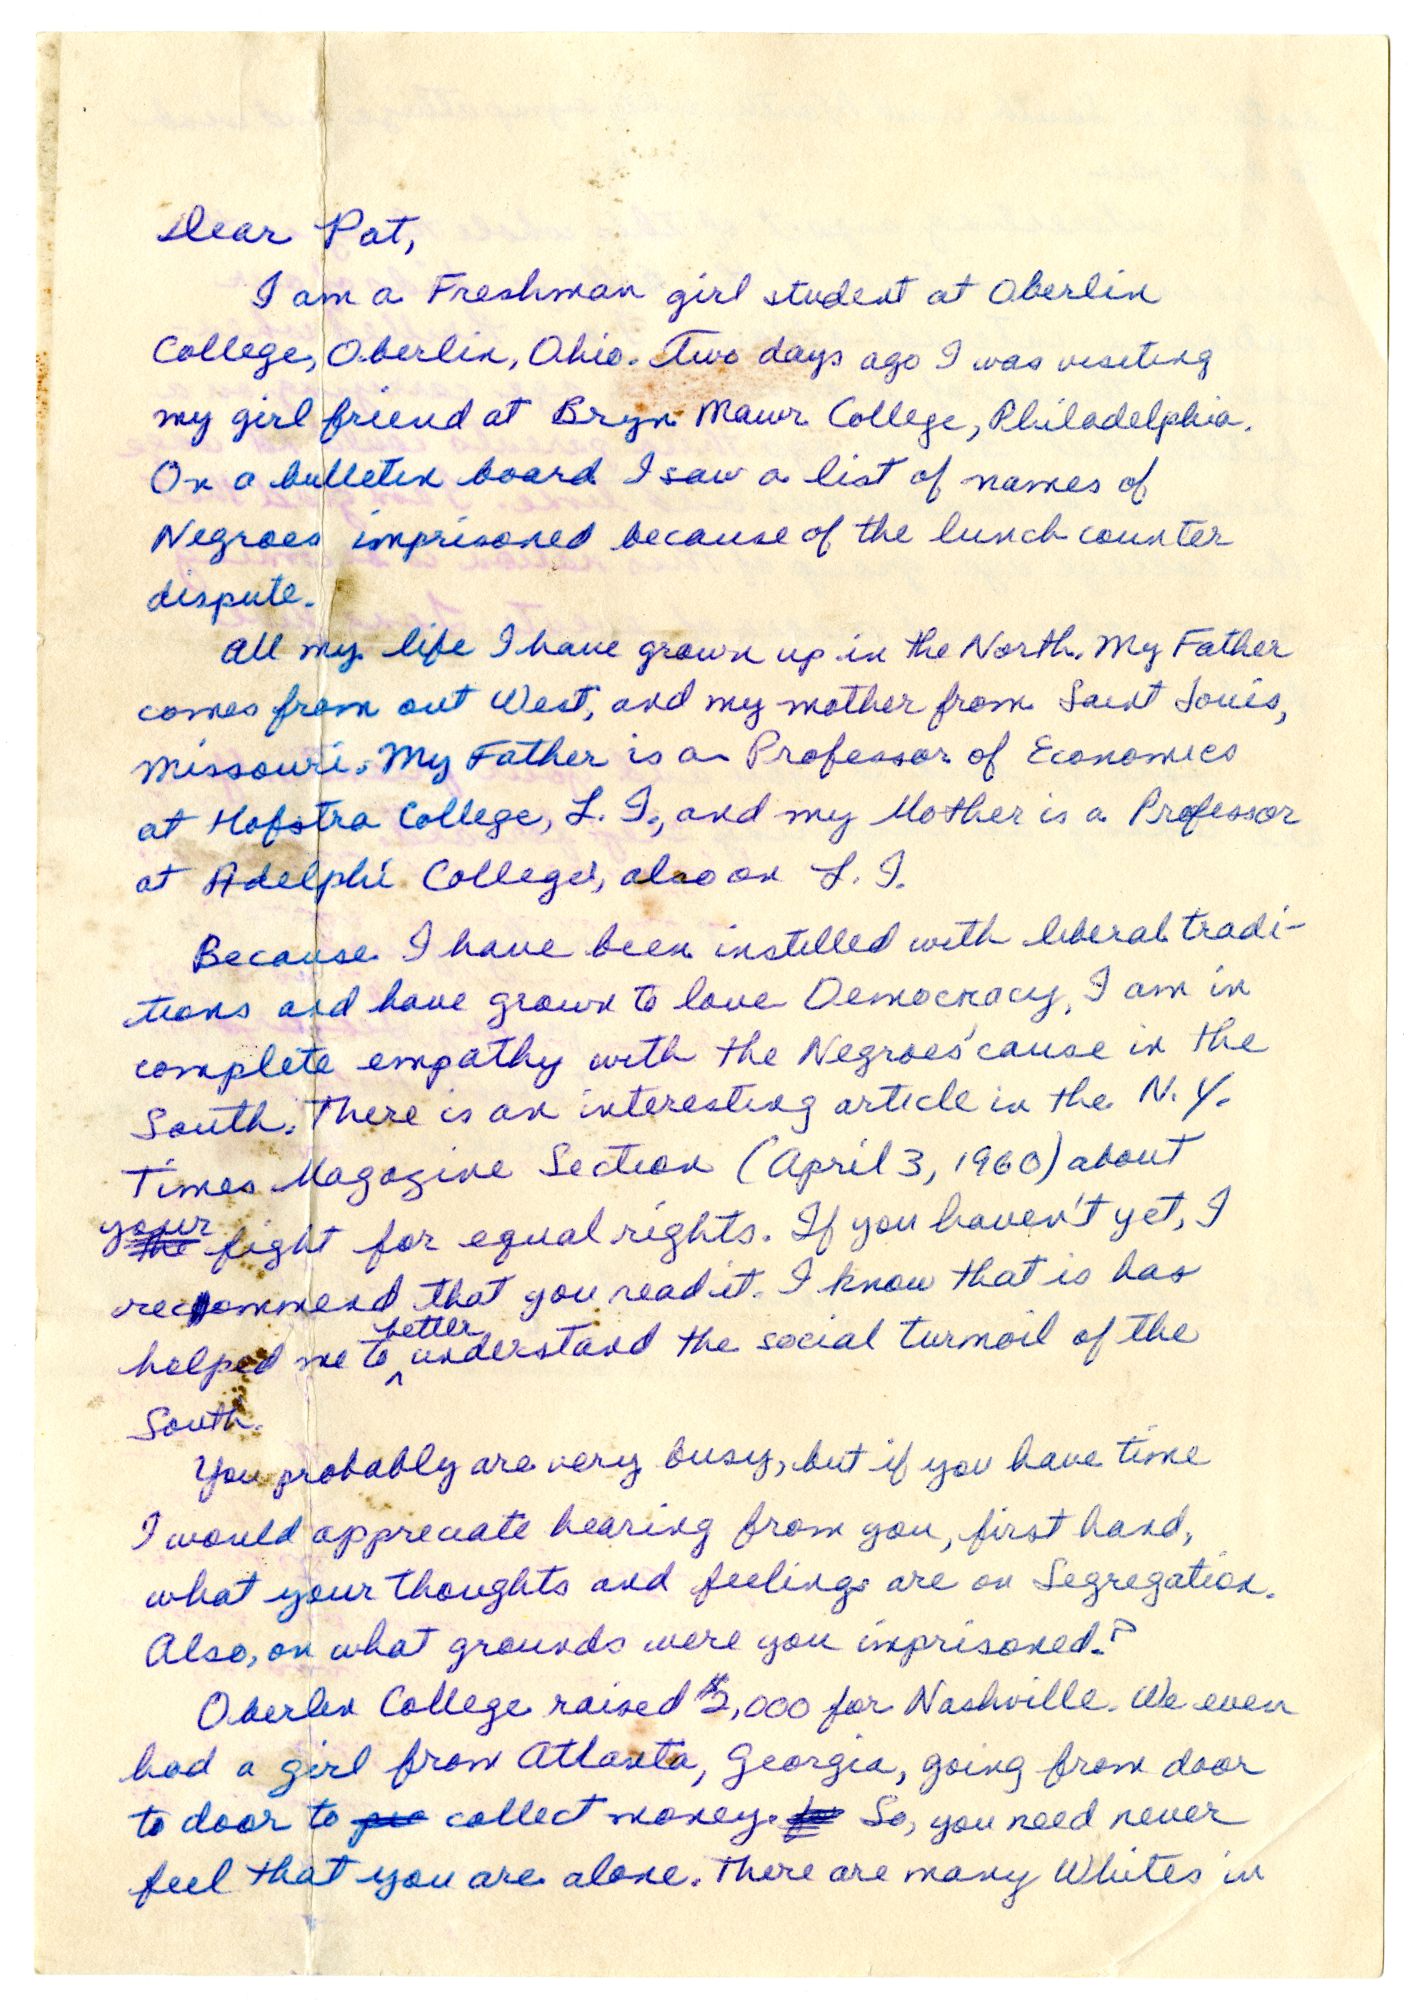 Dear Pat,
I am a Freshman girl student at Oberlin
College, Oberlin, Ohio. Two days ago I was visiting
my girl friend at Bryn Mawr College, Philadelphia.
On a bulletin board I saw a list of names of
Negroes imprisoned because of the lunch counter
dispute.
All my life I have grown up in the North. My Father
comes from out West, and my mother from Saint Louis,
Missouri. My Father is a Professor of Economics
at Hofstra College, L. I., and my Mother is a Professor
at Adelphi College, also on L. I.
Because I have been instilled with liberal tradi-
tions and have grown to love Democracy, I am in
complete empathy with the Negroes' cause in the
South. There is an interesting article in the N. Y.
Times Magazine Section (April 3, 1960) about
your the fight for equal rights. If you haven't yet, I
recommend that you read it. I know that is has
helped me to better understand the social turmoil of the
South.
You probably are very busy, but if you have time
I would appreciate hearing from you, first hand,
what your thoughts and feelings are on Segregation.
Also, on what grounds were you imprisoned.?
Oberlin College raised $2,000 for Nashville. We even
had a girl from Atlanta, Georgia, going from door
to door to collect money. So, you need never
feel that you are alone. There are many Whites in